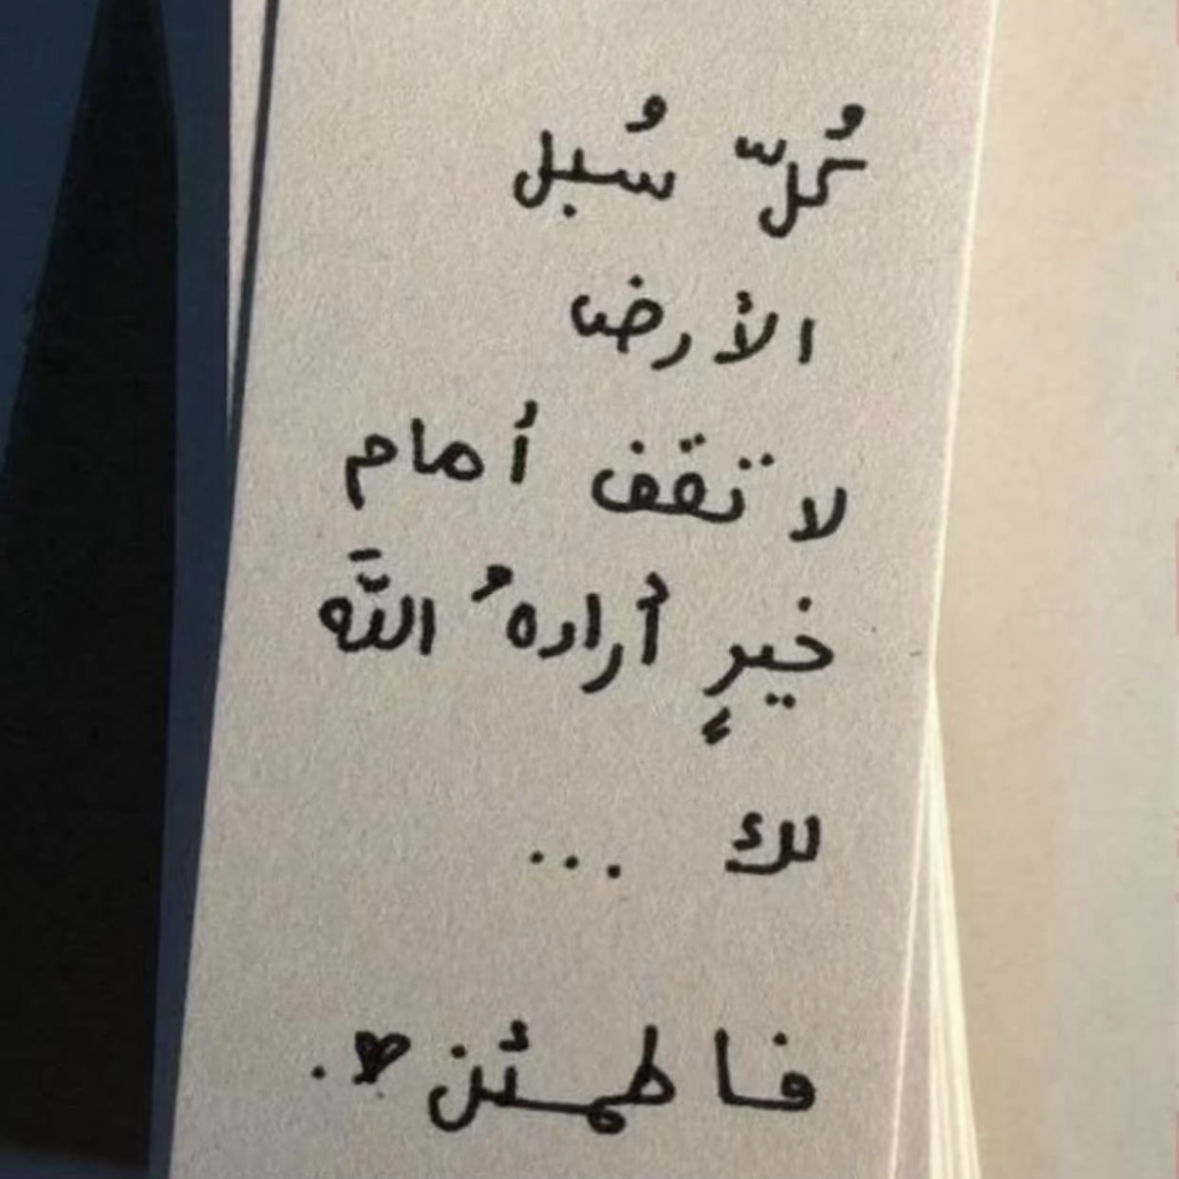 كُلّ سُبل
الأرض
لا تقف أمام
خيرٍ أرادهُ اللَّه
لك ...
فاطمئن ♥.